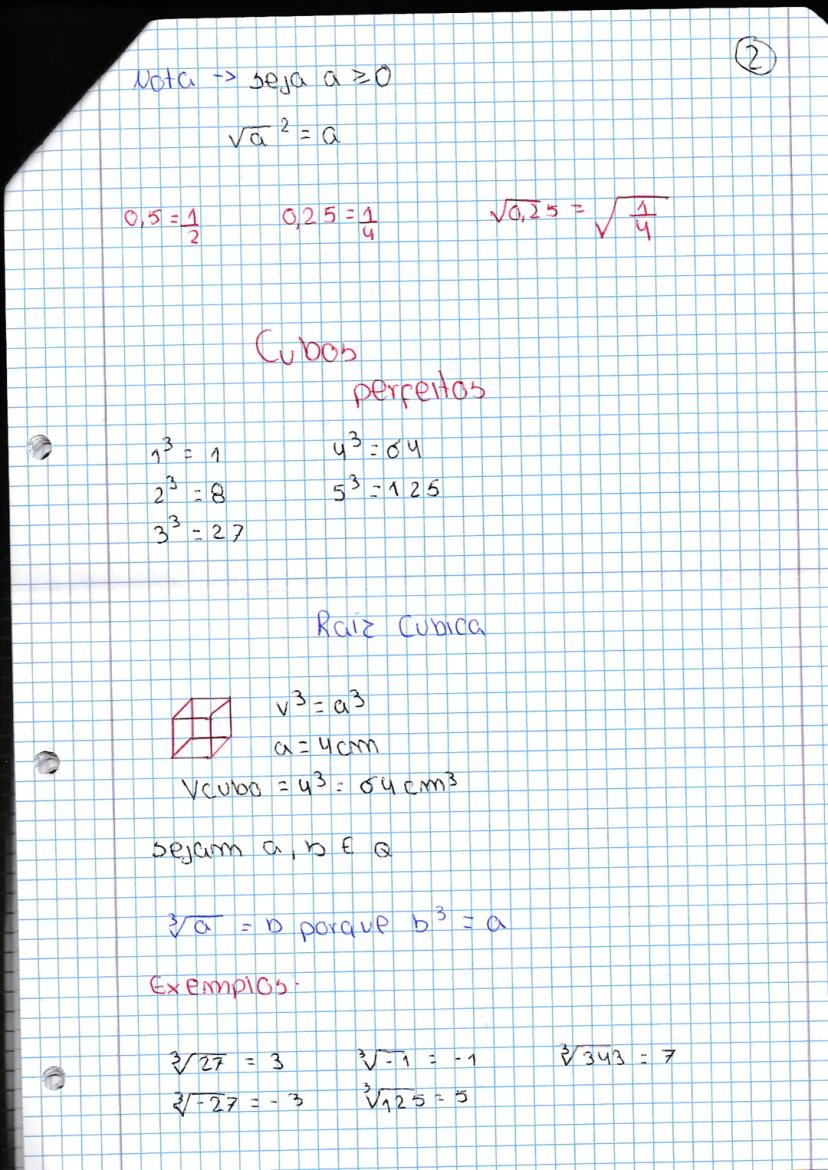 2
Nota -> seja a ≥ 0
√a ² = a
0,5 = 1/2 0,25 = 1/4 √0,25 = √(1/4)
Cubos
perfeitos
1³ = 1 4³ = 64
2³ = 8 5³ = 125
3³ = 27
Raiz Cubica
v³ = a³
a = 4cm
Vcubo = 4³ = 64cm³
sejam a, b ∈ Q
∛a = b porque b³ = a
Exemplos:
∛27 = 3 ∛-1 = -1 ∛343 = 7
∛-27 = -3 ∛125 = 5